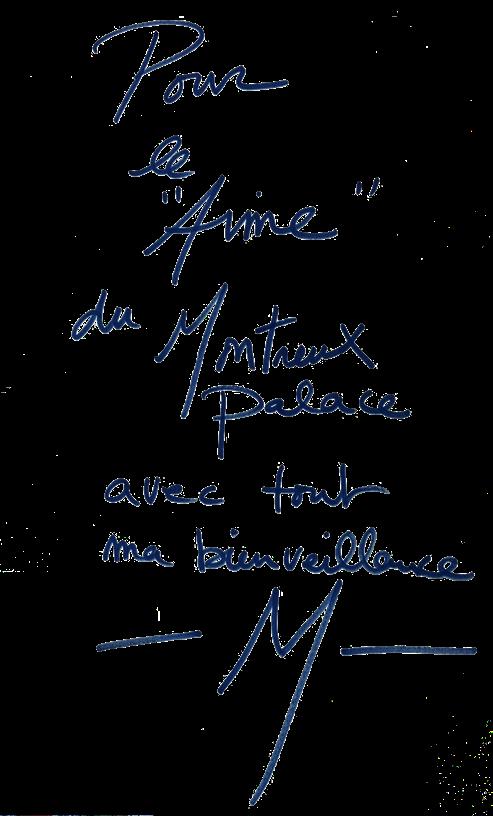 Pour
le
"Aime"
du Montreux
Palace
avec tout
ma bienveillance
— M —